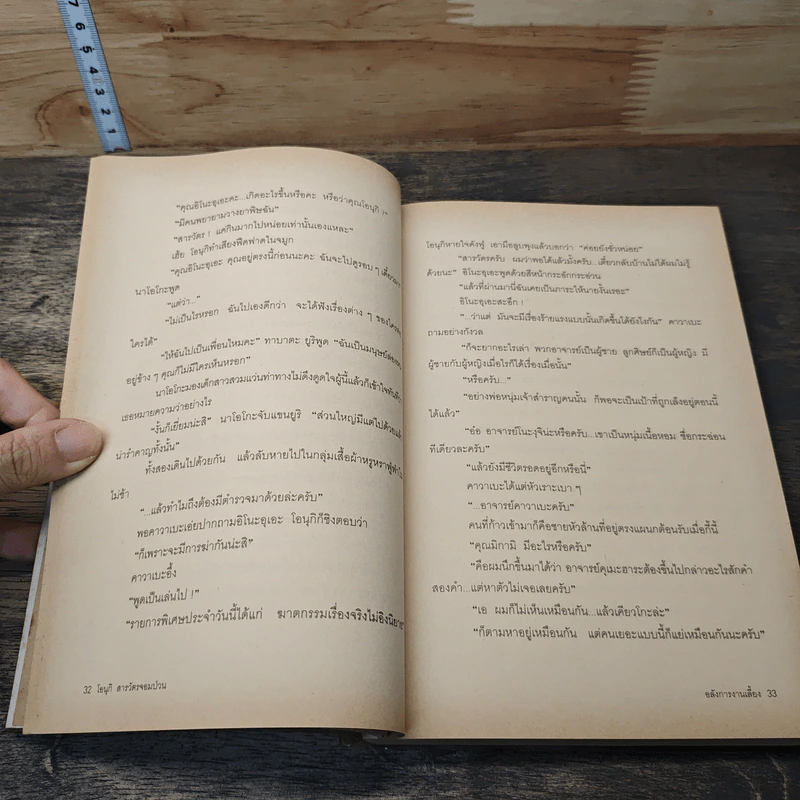 7 6 5 4 3 2 1
"คุณอิโนะอุเอะคะ...เกิดอะไรขึ้นหรือคะ หรือว่าคุณโอนุกิ !"
"มีคนพยายามวางยาพิษฉัน"
"สารวัตร ! แค่กินมากไปหน่อยเท่านั้นเองแหละ"
เฮ้ย โอนุกิทำเสียงฟืดฟาดในจมูก
"คุณอิโนะอุเอะ คุณอยู่ตรงนี้ก่อนนะคะ ฉันจะไปดูรอบ ๆ เดี๋ยวมา"
นาโอโกะพูด
"แต่ว่า..."
"ไม่เป็นไรหรอก ฉันไปเองดีกว่า จะได้ฟังเรื่องต่าง ๆ ของใคร
ใครได้"
"ให้ฉันไปเป็นเพื่อนไหมคะ" ทาบาตะ ยูริพูด "ฉันเป็นมนุษย์
อยู่ข้าง ๆ คุณก็ไม่มีใครเห็นหรอก"
นาโอโกะมองเด็กสาวสวมแว่นท่าทางไม่ดึงดูดใจผู้นี้แล้วก็เข้าใจทันที
เธอหมายความว่าอย่างไร
"งั้นก็เยี่ยมน่ะสิ" นาโอโกะจับแขนยูริ "ส่วนใหญ่มีแต่ไปด้วยแล้ว
น่ารำคาญทั้งนั้น"
ทั้งสองเดินไปด้วยกัน แล้วลับหายไปในกลุ่มเสื้อผ้าหรูหราฟู่ฟ่าใน
ไม่ช้า
"...แล้วทำไมถึงต้องมีตำรวจมาด้วยล่ะครับ"
พอคาวาเบะเอ่ยปากถามอิโนะอุเอะ โอนุกิก็ชิงตอบว่า
"ก็เพราะจะมีการฆ่ากันน่ะสิ"
คาวาเบะอึ้ง
"พูดเป็นเล่นไป !"
"รายการพิเศษประจำวันนี้ได้แก่ ฆาตกรรมเรื่องจริงไม่อิงนิยาย"
32 โอนุกิ สารวัตรจอมป่วน
โอนุกิหายใจดังฟู่ เอามือลูบพุงแล้วบอกว่า "ค่อยยังชั่วหน่อย"
"สารวัตรครับ ผมว่าพอได้แล้วมั้งครับ...เดี๋ยวกลับบ้านไม่ได้ผมไม่รู้
ด้วยนะ" อิโนะอุเอะพูดด้วยสีหน้ากระอักกระอ่วน
"แล้วที่ผ่านมานี่ฉันเคยเป็นภาระให้นายงั้นเรอะ"
อิโนะอุเอะสะอึก !
"...ว่าแต่ มันจะมีเรื่องร้ายแรงแบบนั้นเกิดขึ้นได้ยังไงกัน" คาวาเบะ
ถามอย่างกังวล
"ก็จะยากอะไรเล่า พวกอาจารย์เป็นผู้ชาย ลูกศิษย์ก็เป็นผู้หญิง มี
ผู้ชายกับผู้หญิงเมื่อไรก็ได้เรื่องเมื่อนั้น"
"หรือครับ..."
"อย่างพ่อหนุ่มเจ้าสำราญคนนั้น ก็พอจะเป็นเป้าที่ถูกเล็งอยู่ตอนนี้
ได้แล้ว"
"อ๋อ อาจารย์โนะงุจิน่ะหรือครับ...เขาเป็นหนุ่มเนื้อหอม ชื่อกระฉ่อน
ทีเดียวละครับ"
"แล้วยังมีชีวิตรอดอยู่อีกหรือนี่"
คาวาเบะได้แต่หัวเราะเบา ๆ
"...อาจารย์คาวาเบะครับ"
คนที่ก้าวเข้ามาก็คือชายหัวล้านที่อยู่ตรงแผนกต้อนรับเมื่อกี้นี้
"คุณมิกามิ มีอะไรหรือครับ"
"คือผมนึกขึ้นมาได้ว่า อาจารย์คุเมะฮาระต้องขึ้นไปกล่าวอะไรสักคำ
สองคำ...แต่หาตัวไม่เจอเลยครับ"
"เอ ผมก็ไม่เห็นเหมือนกัน...แล้วเคียวโกะล่ะ"
"ก็ตามหาอยู่เหมือนกัน แต่คนเยอะแบบนี้ก็แย่เหมือนกันนะครับ"
อลังการงานเลี้ยง 33